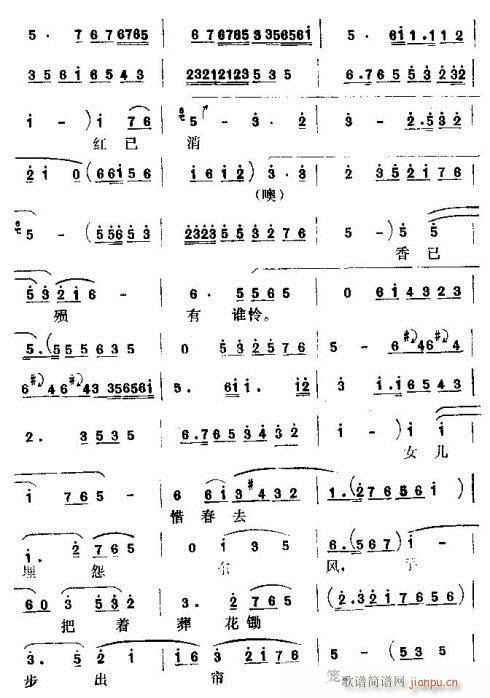 5· 7 6 7 6765 | 6 7 6 7 6 5 3 3 5 6 5 6 i | 5· 6 i i· i i 2
3 5 6 i 6 5 4 3 | 2 3 2 1 2 1 2 3 5 3 5 | 6· 7 6 5 5 3 2 3 2
i - ) i 7 6 | 5 - 3· 2 | 3 - 2· 5 3 2
红已 消
2 i 0 ( 6 6 i 5 6 | i 6 i 2 ) 3· 3 | 2 3 5 2 i 7 6
(噢)
5 - ( 5 5 6 5 3 | 2 3 2 3 5 5 3 2 7 6 | 5 - ) 5 5
香已
5 3 2 i 6 - | 6· 5 5 6 5 | 0 6 i 4 3 2 3
殒 有谁怜。
5· ( 5 5 5 6 3 5 | 0 5 3 2 5 7 6 | 5 - 6 4 6 4
6 4 6 4 3 3 5 6 5 6 i | 5· 6 i i· i 2 | 3 i· i 6 5 4 3
2· 3 5 3 5 | 6· 7 6 5 3 4 3 2 | i - ) i i
女儿
i 7 6 5 - | 6 6 i 3 4 3 2 | 1· ( 2 7 6 5 6 i )
惜春去
i· 2 7 6 5 | 0 i 3 5 | 6· ( 5 6 7 ) i
埋怨 东 风,
6 0 3 5 3 2 | 3· 2 7 6 5 | ( 2· 3 2 i 7 6 5 6 )
把着 葬花锄
3· 5 2 2 | 5 - | 5 - ( 5 3 5
步出 帘 笼
歌谱简谱网
jianpu.cn